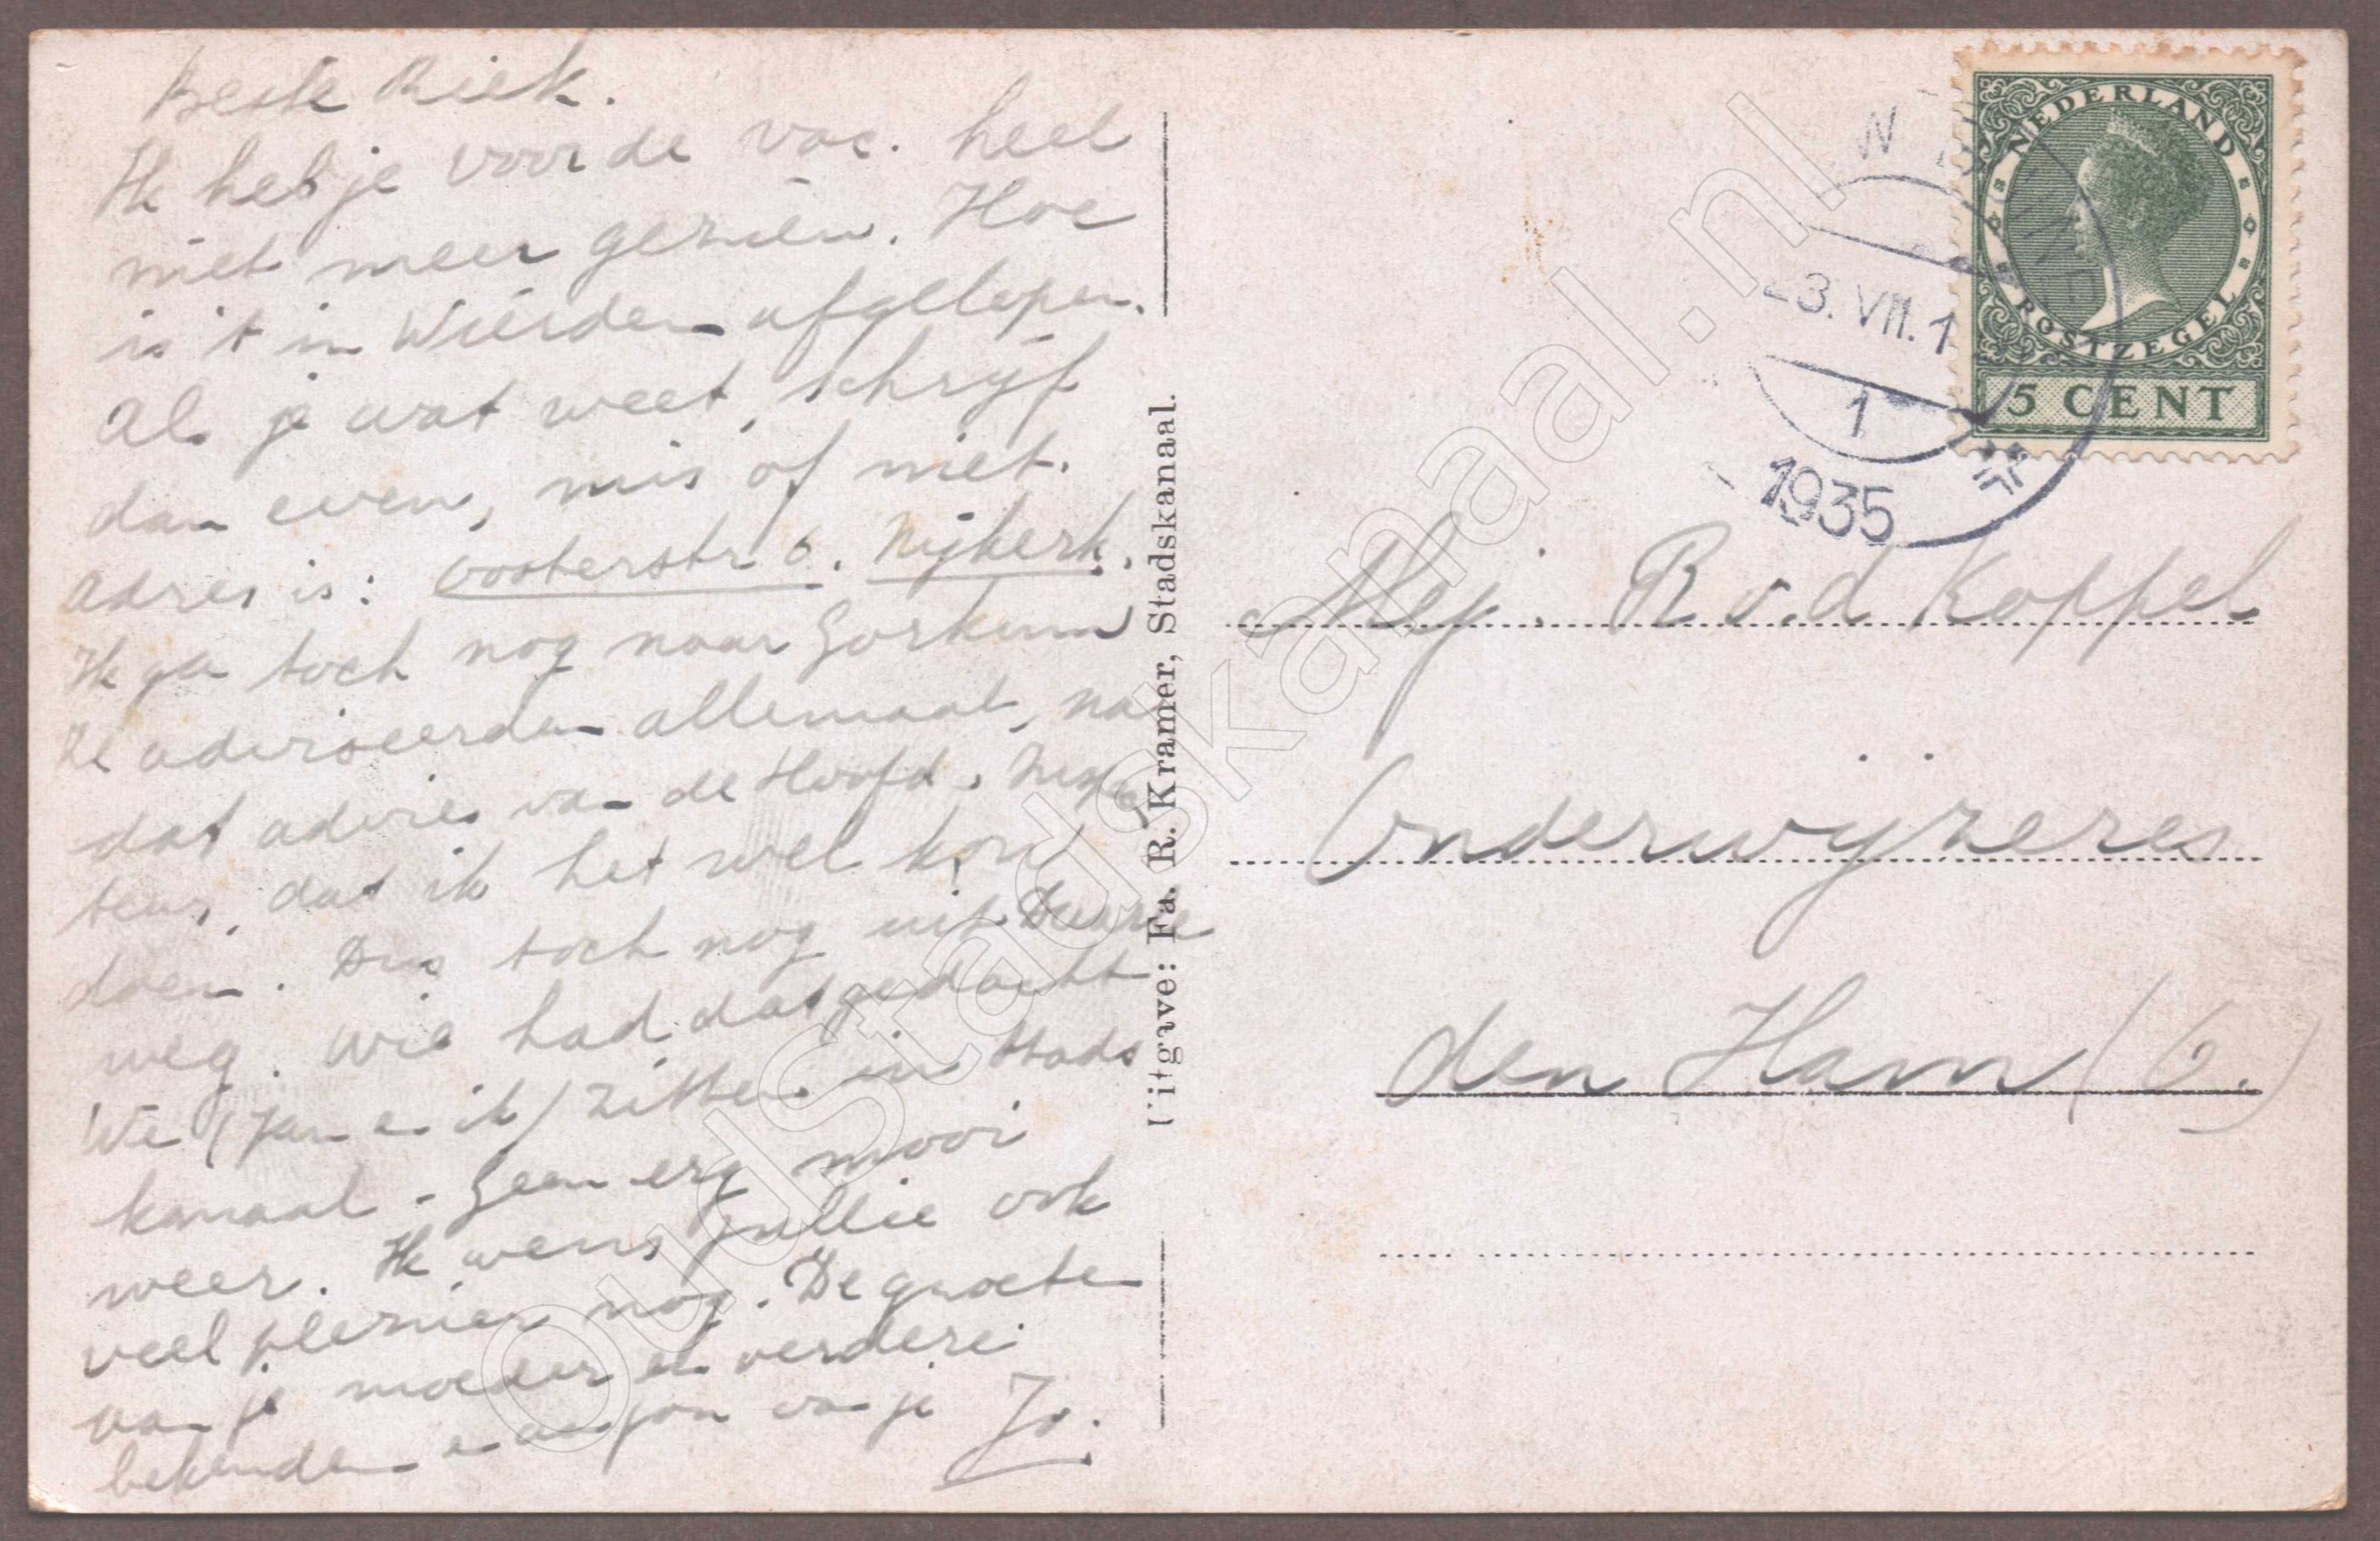 Beste Riek.
Ik heb je voor de vac. heel
niet meer gezien. Hoe
is 't in Wierden afgelopen.
Als je wat weet, schrijf
dan even, mis of niet.
Adres is: Oosterstr 6. Nijkerk.
Ik ga toch nog naar Gorkum
Ze adviseerden allemaal, na
dat advies van de Hoofd.
teur, dat ik het wel kon
doen. Dus toch nog uit Deurne
weg. Wie had dat gedacht
We (Jan en ik) zitten in Stads
kanaal - Geen erg mooi
weer. Ik wens jullie ook
veel plezier nog. De groeten
van je moeder en verdere
bekenden en van Jan van je Jo.
Uitgave: Fa. R. Kramer, Stadskanaal.
NEDERLAND
POSTZEGEL
5 CENT
23. VII. 1
1
1935
Mej. R v.d Koppel
Onderwijzeres
den Ham (O.)
oudstadskanaal.nl